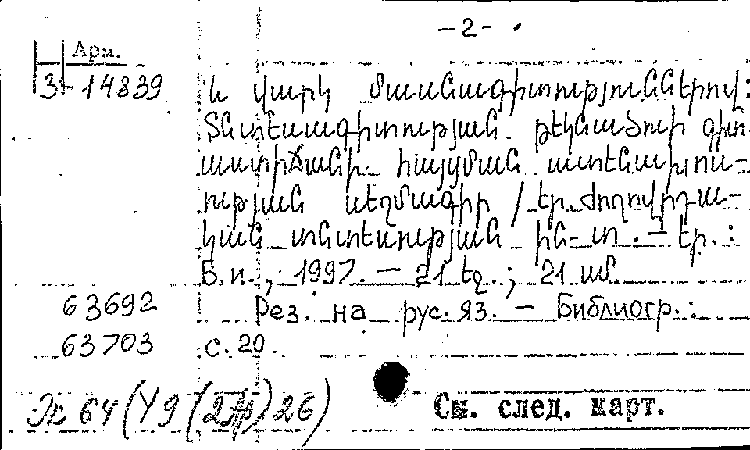 -2-
Арм.
3-14839
և վարկ մասնագիտություններով:
Տնտեսագիտության թեկնածուի գիտ.
աստիճանի հայցման ատենախոս-
ության սեղմագիր / Եր. ժողովրդա-
կան տնտեսության ին-տ. - Եր.:
Б.и., 1997. - 21 էջ.; 21 սմ.
63692 Рез. на рус. яз. - Библиогр.:
63703 с. 20
64(У9(2Ар)26)
См. след. карт.